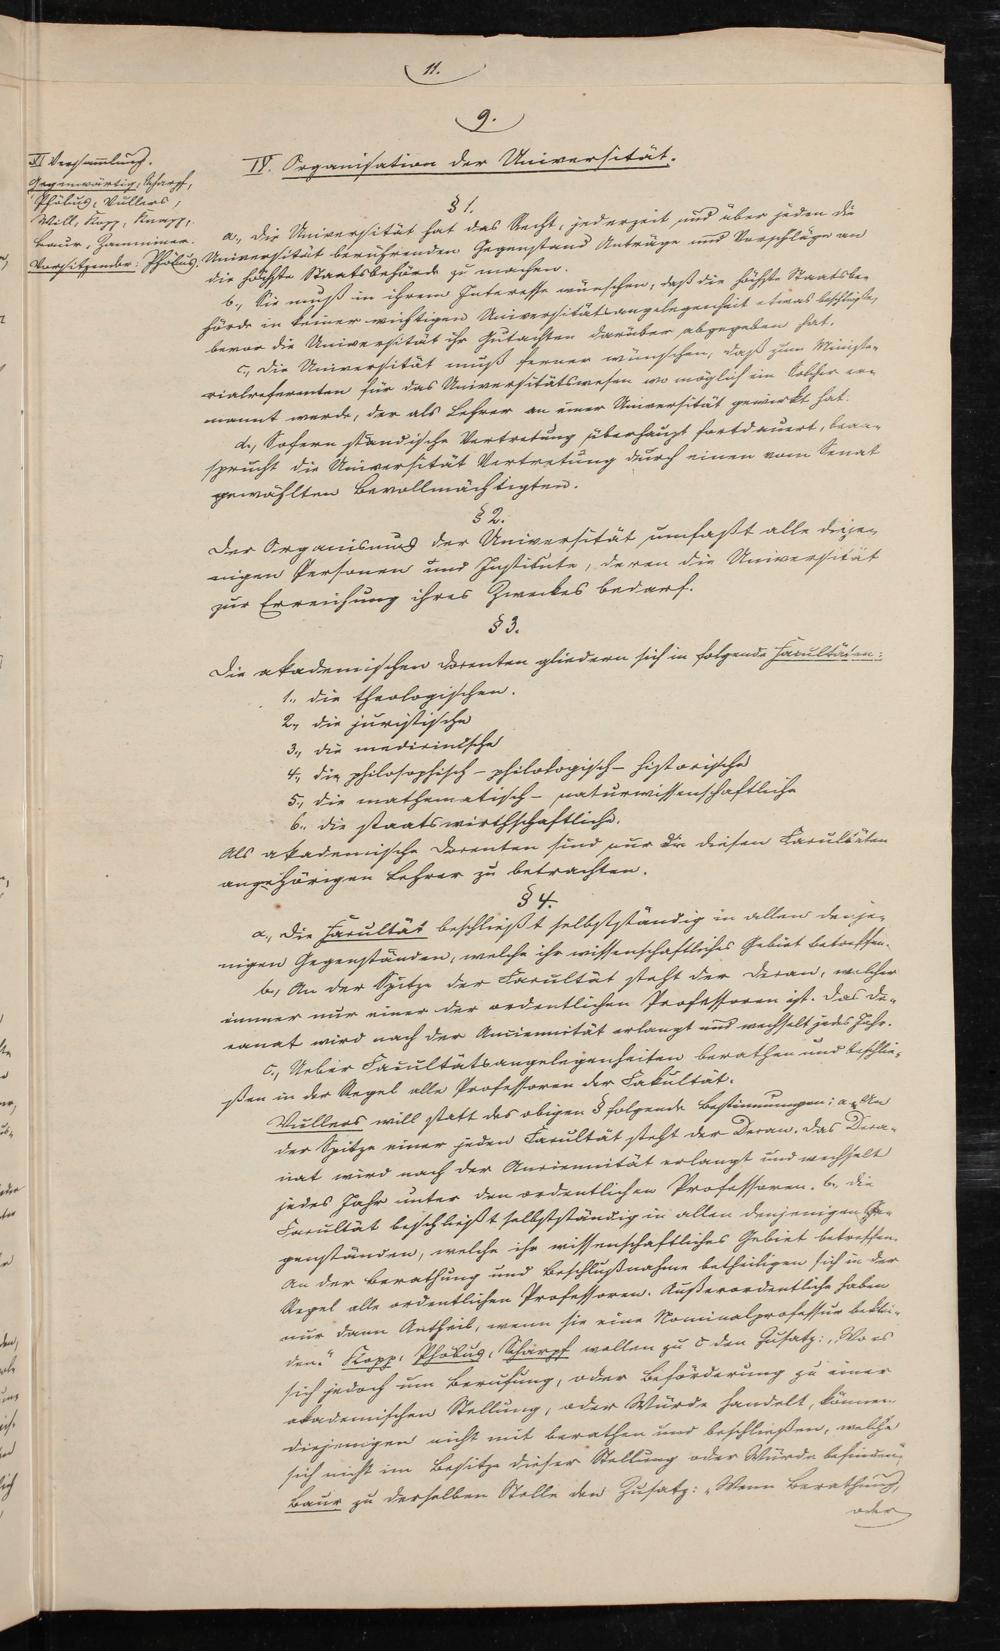 11.
9.
XI Versammlung.
Gegenwärtig: Schärpf,
Phöbus, Vullers,
Will, Kopp, Knapp,
Baur, Zamminer.
Vorsitzender: Phöbus.
IV. Organisation der Universität.
§ 1.
a., Die Universität hat das Recht, jederzeit und über jeden die
Universität berührenden Gegenstand Anträge und Vorschläge an
die höchste Staatsbehörde zu machen.
b., Sie muß in ihrem Interesse wünschen, daß die höchste Staatsbe-
hörde in keiner wichtigen Universitätsangelegenheit etwas beschließe,
bevor die Universität ihr Gutachten darüber abgegeben hat.
c., Die Universität muß ferner wünschen, daß zum Ministe-
rialreferenten für das Universitätswesen wo möglich ein Solcher er-
nannt werde, der als Lehrer an einer Universität gewirkt hat.
d., Sofern ständische Vertretung überhaupt fortdauert, bean-
sprucht die Universität Vertretung durch einen vom Senat
gewählten Bevollmächtigten.
§ 2.
Der Organismus der Universität umfaßt alle dieje-
nigen Personen und Institute, deren die Universität
zur Erreichung ihres Zweckes bedarf.
§ 3.
Die akademischen Docenten gliedern sich in folgende Facultäten:
1., die theologischen.
2., die juristische
3., die medicinische
4., die philosophisch-philologisch-historische
5., die mathematisch-naturwissenschaftliche
6., die staatswirthschaftliche.
Als akademische Docenten sind nur die diesen Facultäten
angehörigen Lehrer zu betrachten.
§ 4.
a., Die Facultät beschließt selbstständig in allen denje-
nigen Gegenständen, welche ihr wissenschaftliches Gebiet betreffen.
b., An der Spitze der Facultät steht der Decan, welcher
immer nur einer der ordentlichen Professoren ist. Das De-
canat wird nach der Anciennität erlangt und wechselt jedes Jahr.
c., Ueber Facultätsangelegenheiten berathen und beschlie-
ßen in der Regel alle Professoren der Fakultät.
Vullers will statt des obigen § folgende Bestimmungen: a., An
der Spitze einer jeden Facultät steht der Decan. Das Deca-
nat wird nach der Anciennität erlangt und wechselt
jedes Jahr unter den ordentlichen Professoren. b., die
Facultät beschließt selbstständig in allen denjenigen Ge-
genständen, welche ihr wissenschaftliches Gebiet betreffen.
An der Berathung und Beschlußnahme betheiligen sich in der
Regel alle ordentlichen Professoren. Außerordentliche haben
nur dann Antheil, wenn sie eine Nominalprofessur beklei-
den." Kopp, Phöbus, Schärpf wollen zu c den Zusatz: „Wo es
sich jedoch um Berufung, oder Beförderung zu einer
akademischen Stellung, oder Würde handelt, können
diejenigen nicht mit berathen und beschließen, welche
sich nicht im Besitze dieser Stellung oder Würde befinden",
Baur zu derselben Stelle den Zusatz: „Wenn Berathung,
oder